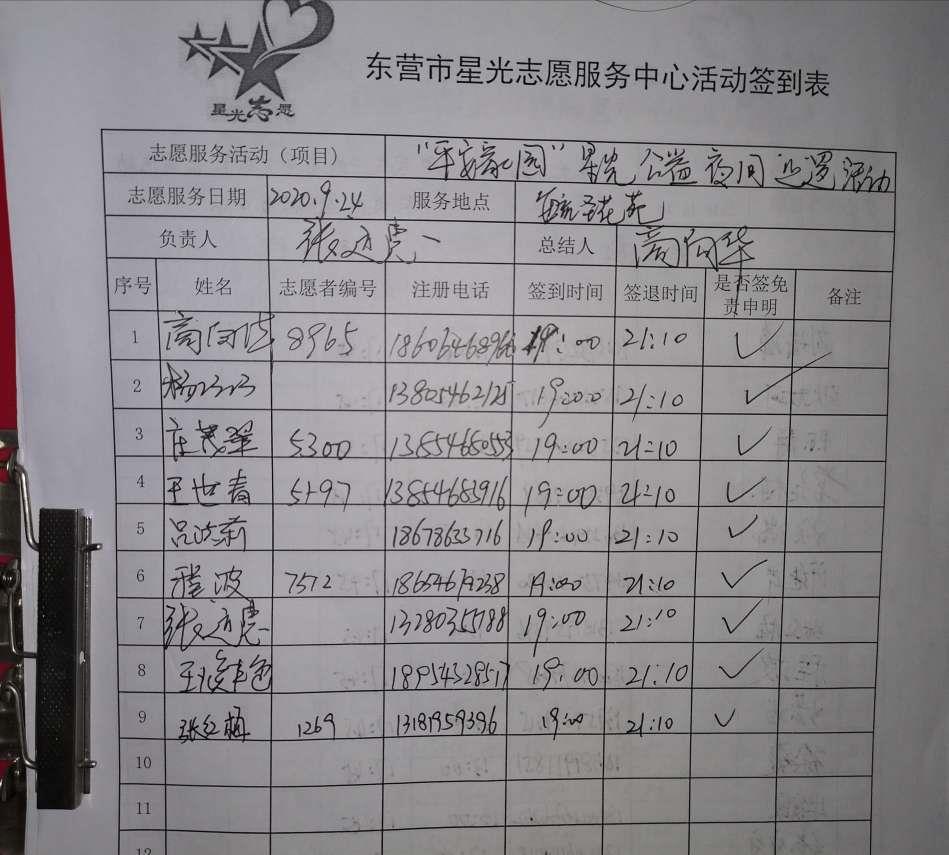 星光志愿
东营市星光志愿服务中心活动签到表
志愿服务活动（项目） “平安校园”星光公益夜间巡逻活动
志愿服务日期 2020.9.24 服务地点
负责人 总结人 高向华
序号 姓名 志愿者编号 注册电话 签到时间 签退时间 是否签免责申明 备注
1 8965 19:00 21:10 ✓
2 13805462125 19:00 21:10 ✓
3 庄茂翠 5300 13854680553 19:00 21:10 ✓
4 王世春 5297 13854683916 19:00 21:10 ✓
5 18678633716 19:00 21:10 ✓
6 程波 7572 18654679238 19:00 21:10 ✓
7 13280355788 19:00 21:10 ✓
8 18954328517 19:00 21:10 ✓
9 张红梅 1269 13181959396 19:00 21:10 ✓
10
11
12